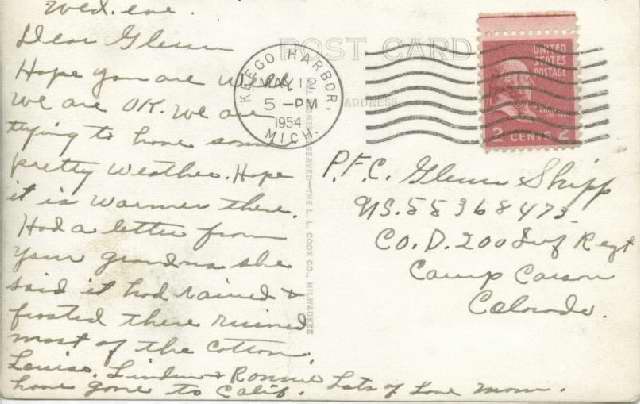 Wed. eve.
Dear Glenn
Hope you are well
we are OK. We are
trying to have some
pretty weather. Hope
it is warmer there.
Had a letter from
your grandma she
said it had rained &
frosted there ruined
most of the cotton.
Louise. Linden & Ronnie
have gone to Calif. Lots of Love Mom.
POST CARD
ADDRESS
KEEGO HARBOR,
5 - PM
1954
MICH.
UNITED
STATES
POSTAGE
2 CENTS 2
P.F.C. Glenn Shipp
US. 55368473.
CO. D. 200 Inf Regt
Camp Carson
Colorado.
THE L. L. COOK CO., MILWAUKEE